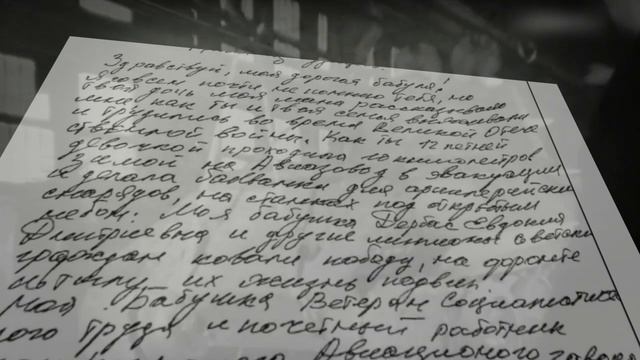 Здравствуй, моя дорогая бабуля!
Я совсем почти не помню тебя, но
твоя дочь и моя мама рассказывала
мне как ты и твоя семья
и трудились во время Великой Отече
ственной войны. Как ты 12 летней
девочкой проходила 10 километров
зимой на Авиазавод в эвакуации
и делала болванки для артиллерийски
снарядов, на станках под открытым
небом. Моя бабушка Дербас Евдокия
Дмитриевна и другие миллионы советски
граждан ковали победу, на фронте
и в тылу их жизнь подвиг.
Моя Бабушка Ветеран Социалистиче
ного труда и почетный работник
Авиационого завода